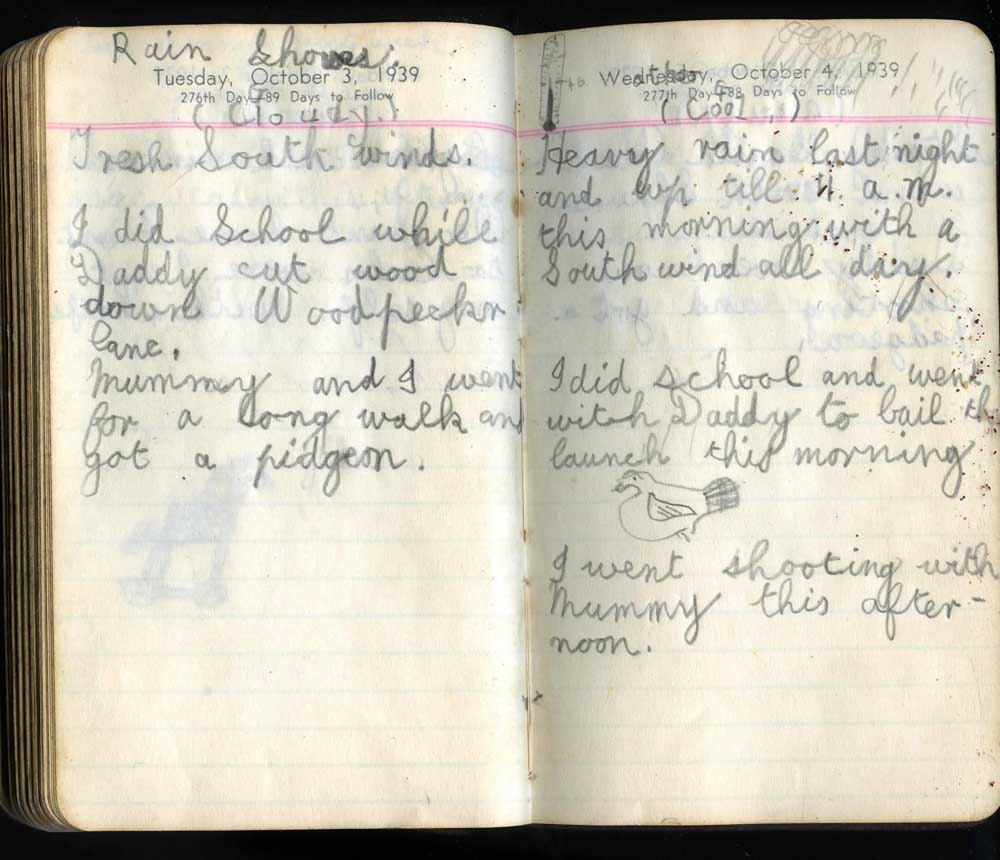 Rain Showes.
Tuesday, October 3, 1939
276th Day—89 Days to Follow
(Cloudy.)
Fresh South winds.
I did School while
Daddy cut wood
down Woodpeckr
lane.
Mummy and I went
for a long walk and
got a pidgeon.
40
Wednesday, October 4, 1939
277th Day—88 Days to Follow
(Cool,)
Heavy rain last night
and up till 11 a.m.
this morning with a
South wind all day.
I did school and went
witch Daddy to bail th
launch this morning
I went shooting with
Mummy this after-
noon.